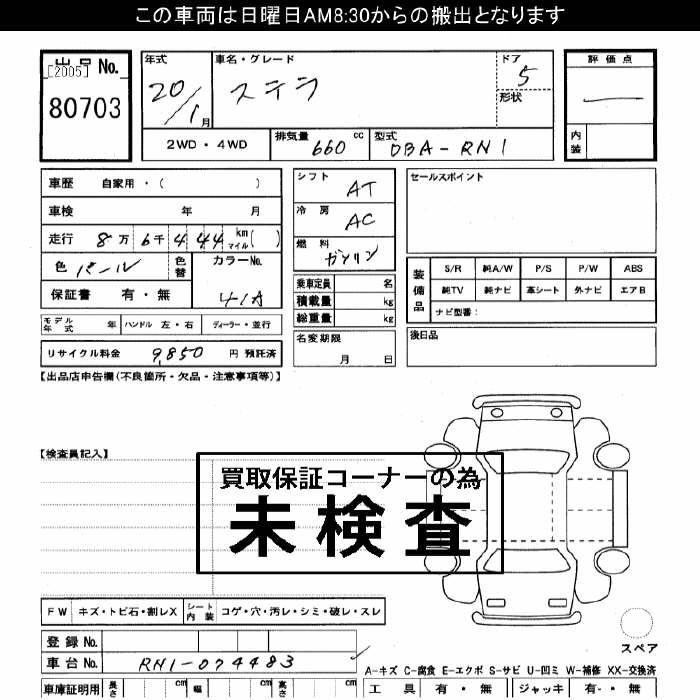 この車両は日曜日AM8:30からの搬出となります
出品 No.
[2005]
80703
年式
20/1月
車名・グレード
ステラ
ドア
5
形状
評価点
内装
2WD・4WD
排気量 660 cc
型式 DBA-RN1
車歴 自家用・( )
車検 年 月
走行 8万6千444 km マイル( )
色 パール
色替
カラーNo.
41A
保証書 有・無
モデル年式 年 ハンドル 左・右 ディーラー・並行
リサイクル料金 9,850 円 預託済
シフト AT
冷房 AC
燃料 ガソリン
乗車定員 名
積載量 kg
総重量 kg
名変期限
月 日
セールスポイント
装備品
S/R 純A/W P/S P/W ABS
純TV 純ナビ 革シート 外ナビ エアB
ナビ型番:
後日品
【出品店申告欄(不良箇所・欠品・注意事項等)】
【検査員記入】
買取保証コーナーの為
未検査
FW キズ・トビ石・割レX シート内装 コゲ・穴・汚レ・シミ・破レ・スレ
登録No.
車台No. RN1-074483
車庫証明用 長さ cm 幅 cm 高さ cm
スペア
A-キズ C-腐食 E-エクボ S-サビ U-凹ミ W-補修 XX-交換済
工具 有・無 ジャッキ 有・無